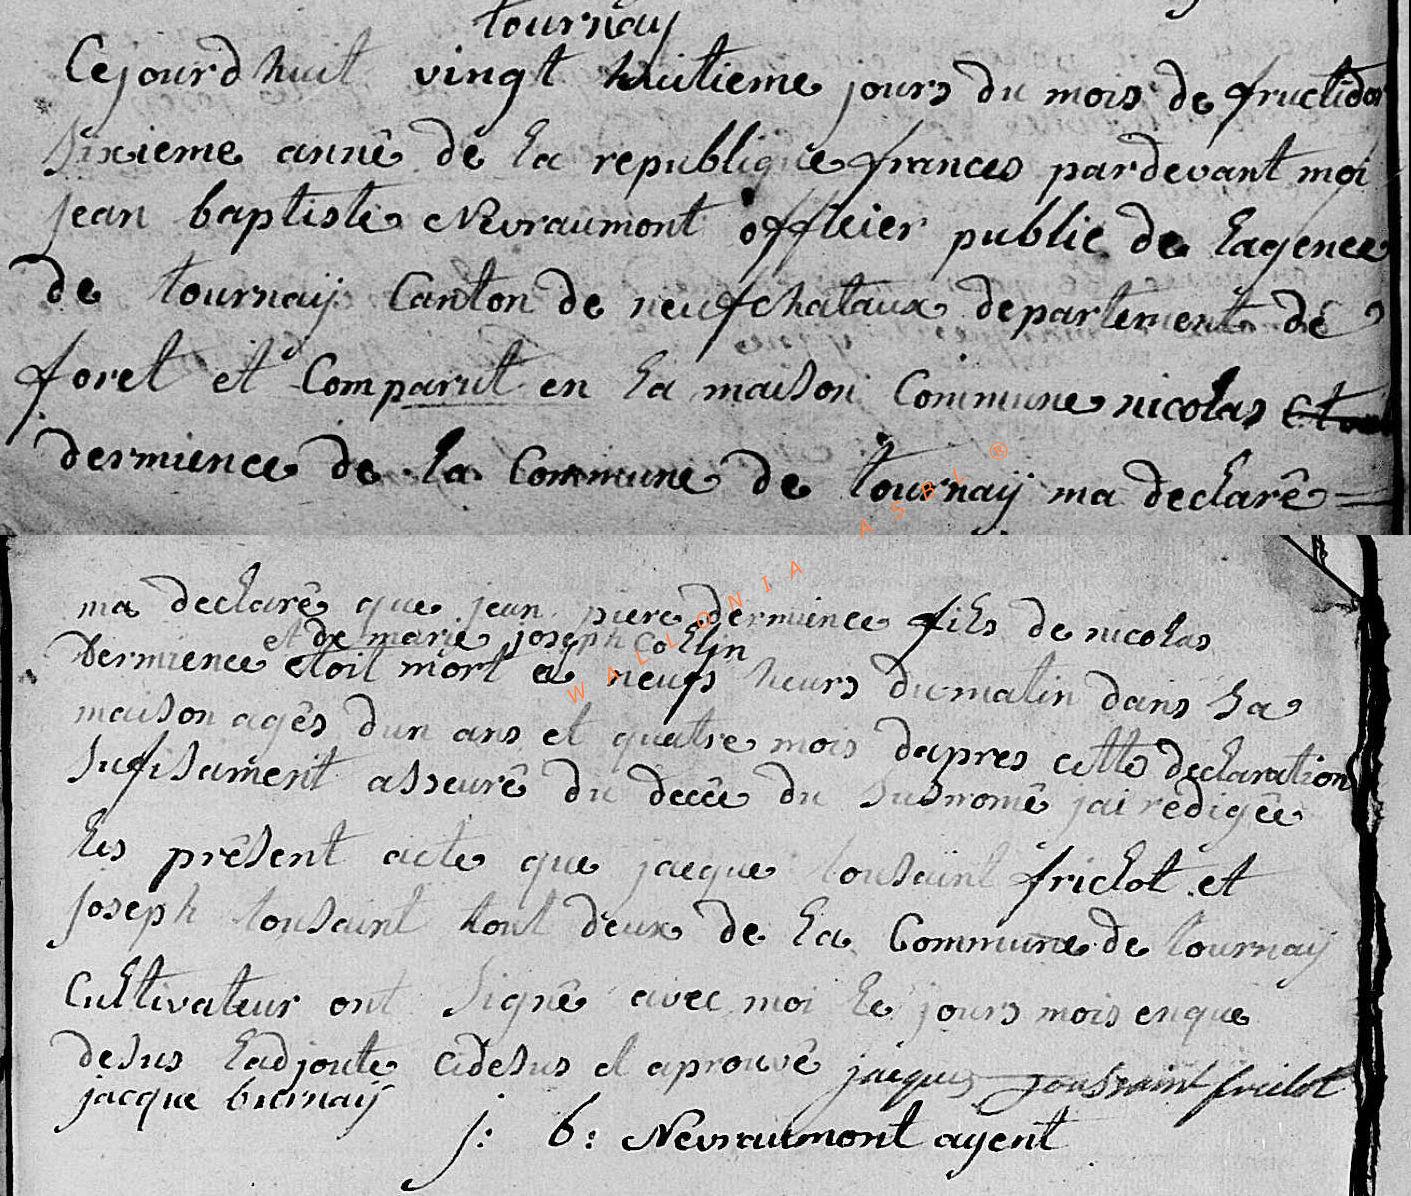 tournaÿ
Cejourdhuit vingt huitieme jours du mois de fructidor
sixieme annê de la republique frances pardevant moi
jean baptiste Nevraumont officier public de lagence
de tournaÿ Canton de neufchataux departement dé
foret et Comparut en la maison Commune nicolas
dermience de la Commune de tournaÿ ma declarê
ma declarê que jean piere dermience fils de nicolas
et de marie joseph Collin
dermience etoit mort a neufs heurs du matin dans sa
maison agês dun ans et quatre mois dapres cette declaration
sufisament asseurê du decêe du susnomê jai redigêe
les prêsent acte que jacque tousaint frichot et
joseph tousaint tout deux de la Commune de tournaÿ
Cultivateur ont signê avec moi le jours mois enque
desus ladjoute cidesus et aprouvê jacques toussaint frichot
jacque burnaÿ
j: b: Nevraumont agent
WALLONIA ASBL ®